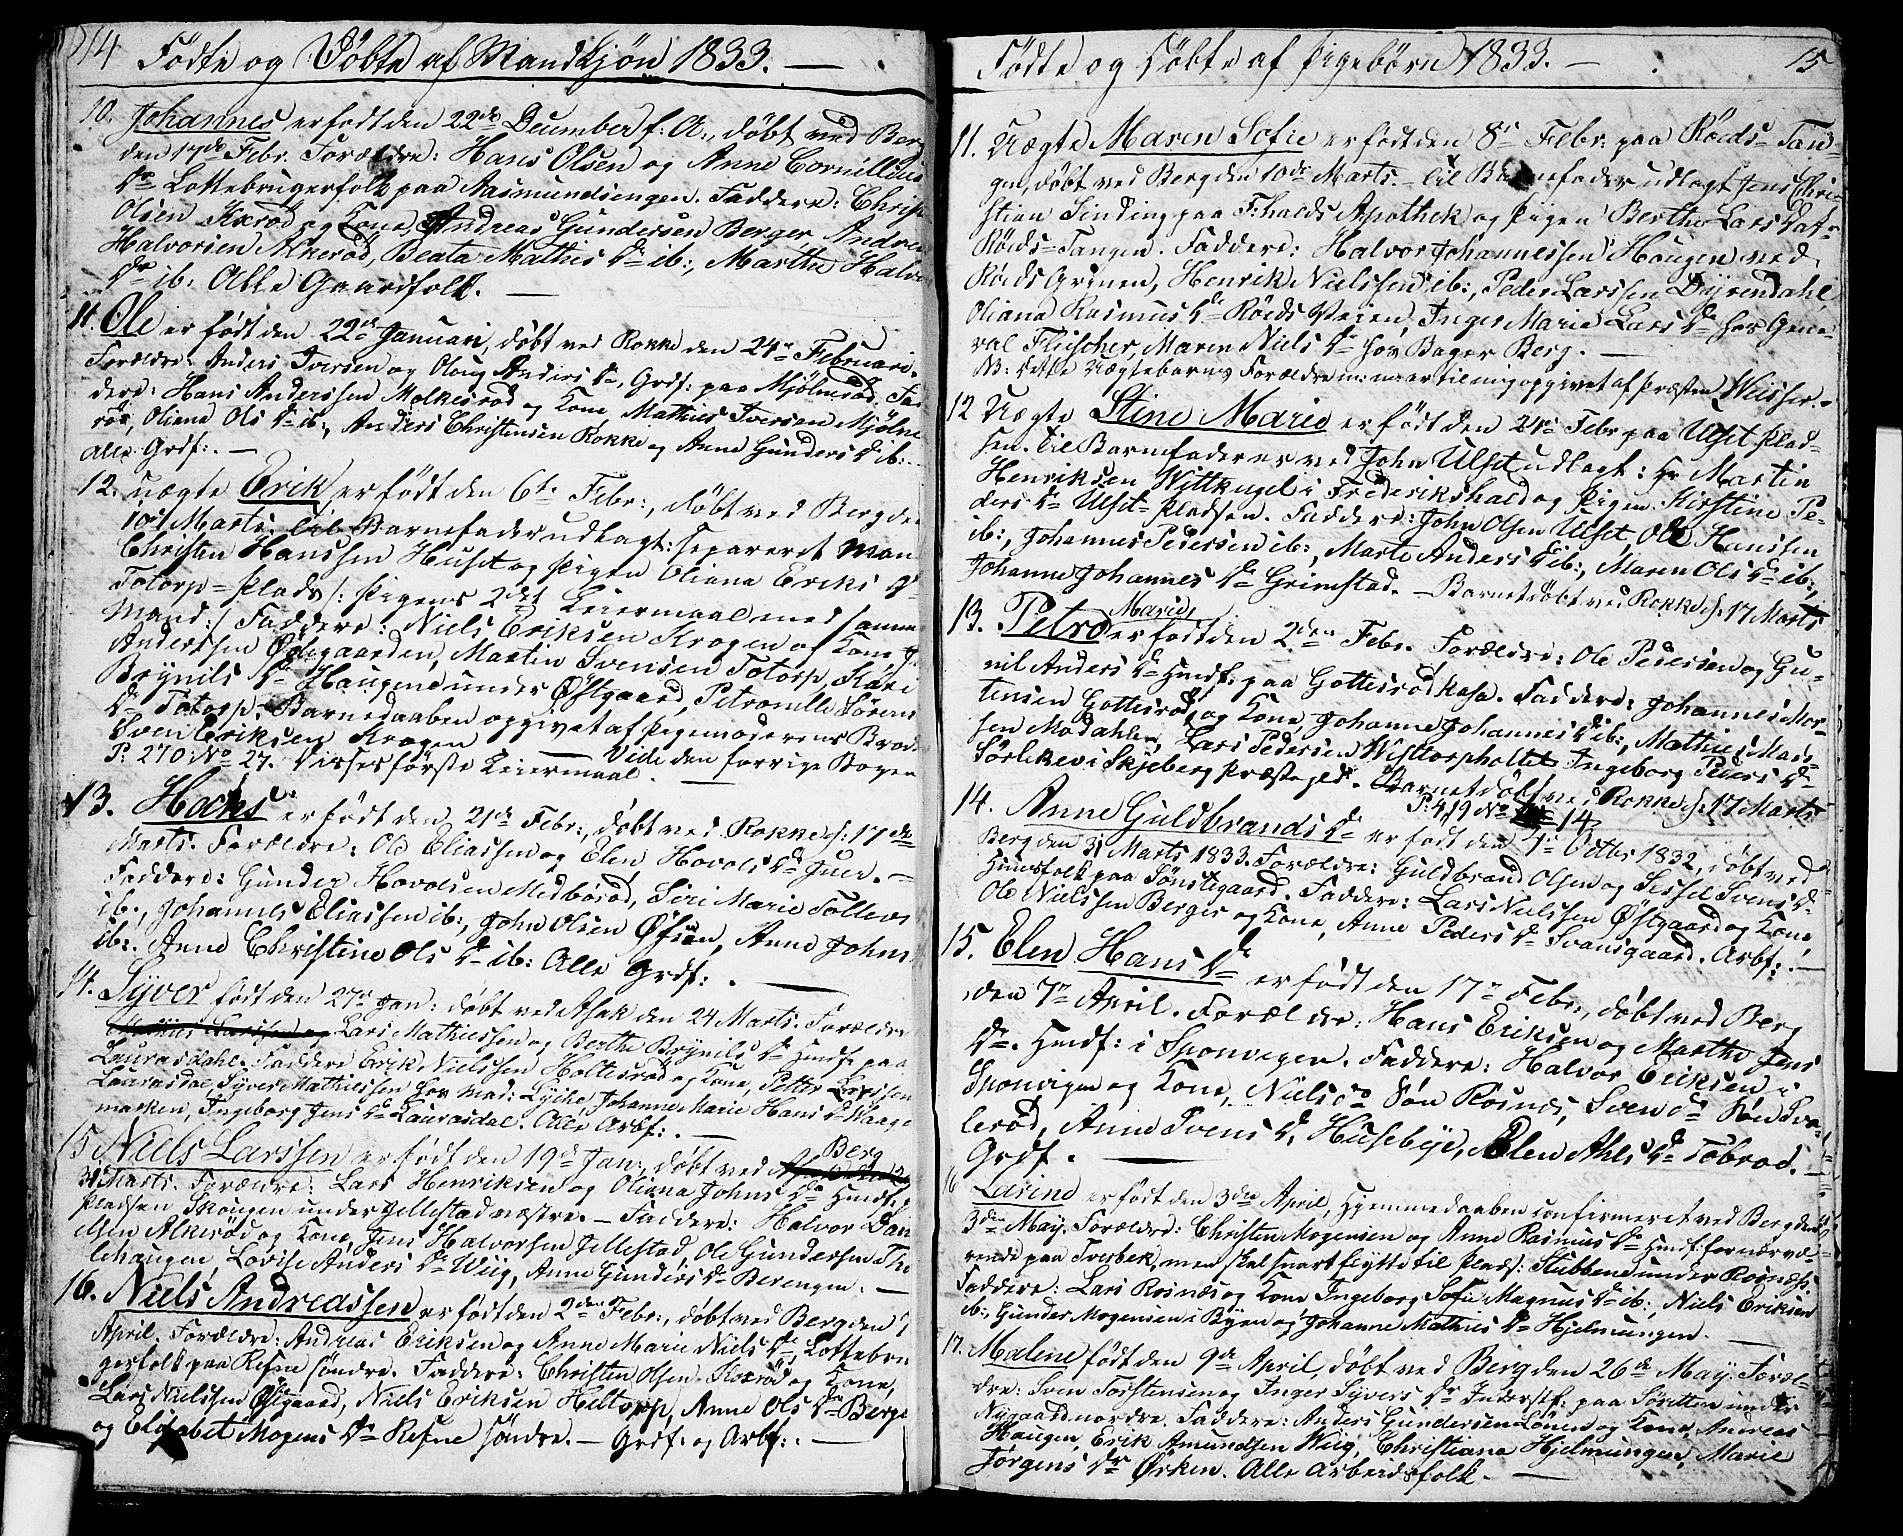 14 Födte og Döbte af Mandkjön 1833. —
10. Johannes er födt den 22de December f. A., döbt ved Berg
den 17de Febr. Forældre: Hans Olsen og Anne Cornillius
Dr Lottebrugerfolk paa Aasmundsengen. Faddere: Christ
Olsen Kxröd og Kone, Andreas Gundersen Berger, Andrea
Halvorsen Akeröd, Beata Mathis Dr ib:, Marthe Halvor
Dr ib: Alle Gaardfolk. —
11. Ole er födt den 22de Januari, döbt ved Rokke den 24de Februari.
Forældre: Anders Iversen og Oloug Anders Dr, Grdf: paa Mjölneröd. Fad
dere: Hans Anderssen Molkesröd og Kone, Mathies Iversen Mjölne
röd, Oliana Ols Dr ib:, Anders Christensen Rokke og Anne Gunders Dr ib:
alle Grdf: . —
12. uægte Erik er födt den 6te Febr:, döbt ved Berg den
10de Marts. Til Barnefader udlagt: separeret Mand
Christen Hanssen Huset og Pigen Oliana Eriks Dr
Totorp-Plads /: Pigens 2det Leiermaal med samme
Mand :/ Faddere: Niels Eriksen Krogen og Kone
Anderssen Ödegaarden, Martin Svensen Totorp, Kari
Brynils Dr Haugene under Östgaard, Petronille Sörens
Dr Totorp. Barnedaaben opgivet af Pigemoderens Broder
Sven Eriksen Krogen — Vide den forrige Bogen
P: 270 No 27. Disses förste Leiermaal.
13. Hans er födt den 21de Febr:, döbt ved Rokke d: 17de
Marts. Forældre: Ole Eliassen og Elen Hovels Dr Juer. —
Faddere: Gunder Hovelsen Medböröd, Siri Marie Tollevs
ib:, Johannes Eliassen ib:, John Olsen Öfsön, Anne Johns
ib:. Anne Christine Ols Dr ib: Alle Grdf: . —
14. Syver födt den 27de Jan: döbt ved Asak den 24 Marts. Forældre
Lars Mathiessen og Berthe Brynils Dr Hmdf: paa
Laurasdahl. Faddere Erik Nielssen Holtesröd og Kone, Petter Larssen
Laurasdal, Syver Mathiessen hos Mad: Lyche, Johanne Marie Hans Dr Waage
marken, Ingeborg Jens Dr Laurasdal. Alle Arbf: . —
15 Niels Larssen er födt den 19de Jan:, döbt ved Berg
31 Marts. Forældre: Lars Henriksen og Oliana Johns Dr Hmdf:
Pladsen Skougen under Jellestad vestre. — Faddere: Halvor Dan
elsen Akeröd og Kone, Jens Halvorsen Jellestad, Ole Gundersen The
lehaugen, Lovise Anders Dr Wiig, Anne Gunders Dr Berengen. —
16. Niels Andreassen er födt den 2den Febr:, döbt ved Berg den 7
April. Forældre: Andreas Eriksen og Anne Marie Niels Dr, Lottebru
gerfolk paa Refne söndre. Faddere: Christen Olsen Kxröd og Kone,
Lars Nielssen Östgaard, Niels Eriksen Heltorp, Anne Ols Dr Berge
og Elisabet Mogens Dr Refne söndre. — Grdf: og Arbf: . —
Födte og Döbte af Pigebörn 1833. — 15
11. Uægte Maren Sofie er födt den 8de Febr: paa Röds-Tan-
gen, döbt ved Berg den 10de Marts. — Til Barnefader udlagt Jens Chri-
stian Sinding paa F:halds Apothek og Pigen Berthe Lars Dat-r
Röds-Tangen. Faddere: Halvor Johannessen Haugen ved
Röds Grinen, Henrik Nielssen ib:, Peder Larssen Dyrendahl,
Oliana Rasmus Dr Röds Veien, Inger Marie Lars Dr hos Gene-
ral Fleischer, Maren Niels Dr hos Bager Berg. —
NB: Dette Uægtebarns Forældre m:m: er til mig opgivet af Præsten Weisser. —
12 Uægte Stine Marie er födt den 24de Febr paa Ulset Plad-
sen. Til Barnefader er ved John Ulset udlagt: Hr Martin
Henriksen Wittkugel i Frederikshald og Pigen Kirstine Pe-
ders Dr Ulset-Pladsen. Faddere: John Olsen Ulset, Ole Hanssen
ib:, Johannes Pedersen ib:, Marte Anders Dr ib:, Maren Ols Dr ib:,
Johanne Johannes Dr Grimstad. — Barnet döbt ved Rokke d: 17 Marts
13. Petro Marie, er födt den 2den Febr. Forældre: Ole Pedersen og Gu-
nil Anders Dr Hmdf: paa Gottesröd kasa. Faddere: Johannes Mor-
tensen Gottesröd og Kone, Johanne Johannes Dr ib:, Mathies Mads-
sen Modahlen, Lars Pedersen Wisttorpholtet Ingeborg Peders Dr
Sörlikev i Skjeberg Præstegjed. Barnet döbt ved Rokke d: 17 Marts
P: 419 No 14
14. Anne Guldbrands Dr er födt den 7de Octbr 1832, döbt ved
Berg den 31 Marts 1833. Forældre: Guldbrand Olsen og Sissel Svens D-
Huusfolk paa Sönstegaard. Faddere: Lars Nielssen Östgaard og Kone,
Ole Nielssen Berger og Kone, Anne Peders Dr Svansgaard. Arbf: . —
15. Elen Hans Dr er födt den 17de Febr:, döbt ved Berg
den 7de April. Forældre: Hans Eriksen og Marthe Jens
Dr. Hmdf: i Sponvigen. Faddere: Halvor Eriksen i
Sponvigen og Kone, Niels do Sön Rosnes, Sven do Sön Sva-
leröd, Anne Svens Dr, Husebye, Elen Ahls Dr Töbröd. —
Grdf. —
16 Larine er födt den 3die April, Hjemmedaaben confirmeret ved Berg den
3die May. Forældre: Christen Mogensen og Anne Rasmus Dr Hmdf: for nærvæ-
rende paa Torsbek, men skal snart flytte til Plads: Stubbene under Rosnes.
Faddere: Lars Rosnes og Kone Ingeborg Sofie Magnus Dr ib:, Niels Eriksen
ib:, Gunder Mogensen i Byen og Johanne Mathies Dr Hjelmungen. —
17. Malene födt den 9de April, döbt ved Berg den 26de May. Foræl-
dre: Sven Torstensen og Inger Syvers Dr Inderstf: paa Söretten under
Nygaard nordre. Faddere: Anders Gundersen Lörn og Kone, Andreas
Haugen, Erik Amundsen Wiig, Christiana Hjelmungen, Marie
Jörgens Dr Örken. Alle Arbeidsfolk. —